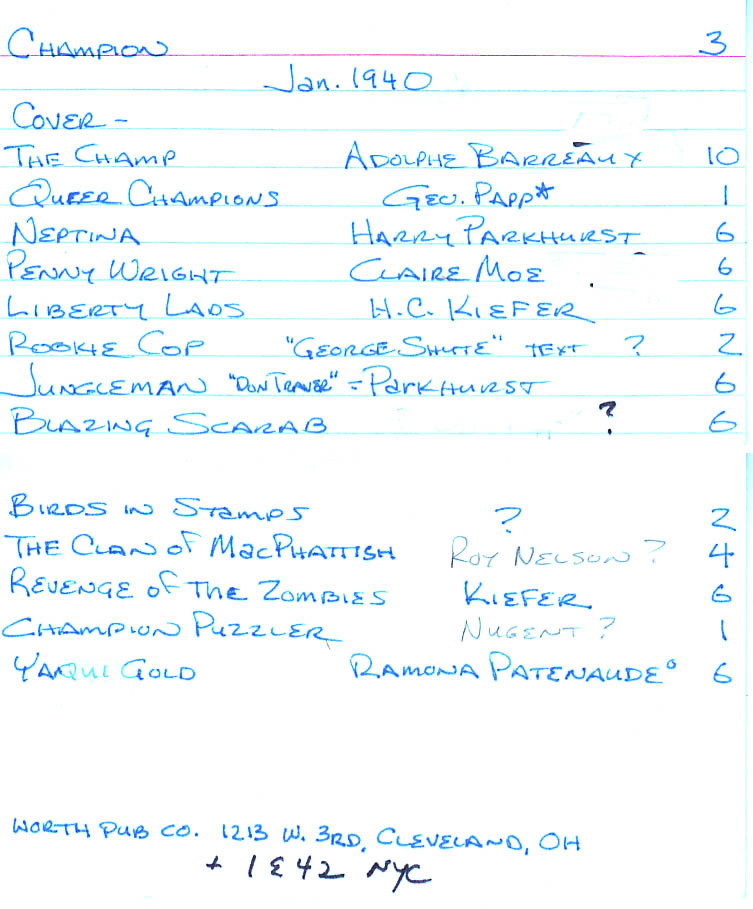 Champion 3
Jan. 1940
Cover -
The Champ Adolphe Barreaux 10
Queer Champions Geo. Papp* 1
Neptina Harry Parkhurst 6
Penny Wright Claire Moe 6
Liberty Lads H.C. Kiefer 6
Rookie Cop "George Shute" text ? 2
Jungleman "Don Traver" = Parkhurst 6
Blazing Scarab ? 6
Birds in Stamps ? 2
The Clan of MacPhattish Roy Nelson ? 4
Revenge of the Zombies Kiefer 6
Champion Puzzler Nugent ? 1
Yaqui Gold Ramona Patenaude° 6
Worth Pub Co. 1213 W. 3rd, Cleveland, OH
+ 1 E 42 NYC